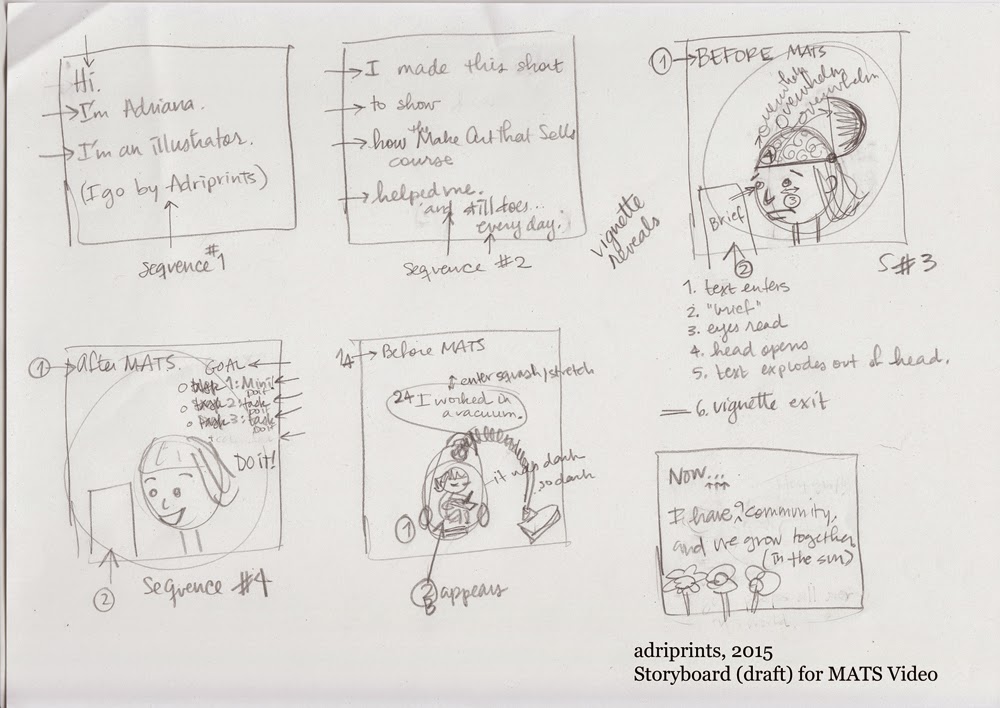 Hi.
I'm Adriana.
I'm an illustrator.
(I go by Adriprints)
sequence #1
I made this short
to show
how Make Art That Sells
course
helped me.
and still does...
every day.
sequence #2
vignette
reveals
1 BEFORE MATS
overwhelm
overwhelm
overwhelm
4
3
Brief
2
S#3
1. text enters
2. "brief"
3. eyes read
4. head opens
5. text explodes out of head.
6. vignette exit
1 After MATS.
GOAL
1: Mini!
Do it
task 2: task
Do it
task 3: task
Do it
Do it!
2
Sequence #4
1A Before MATS
enter squash/stretch
2A I worked in
a vacuum.
it was dark
so dark
1
2B appears
Now...
I have a community,
and we grow together
(in the sun)
adriprints, 2015
Storyboard (draft) for MATS Video